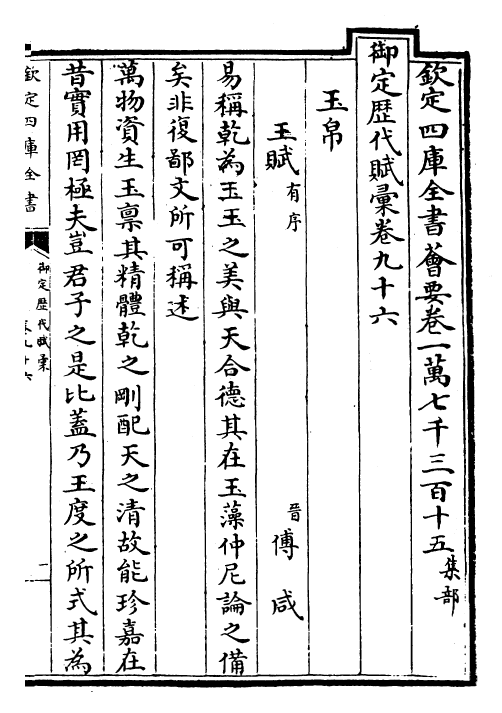 欽定四庫全書薈要卷一萬七千三百十五集部
御定歴代賦彙卷九十六
玉帛
玉賦有序 晉傅咸
易稱乾為玉玉之美與天合德其在玉藻仲尼論之備
矣非復鄙文所可稱述
萬物資生玉禀其精體乾之剛配天之清故能珍嘉在
昔寳用罔極夫豈君子之是比蓋乃王度之所式其為
欽定四庫全書
御定歴代賦彙
卷九十六